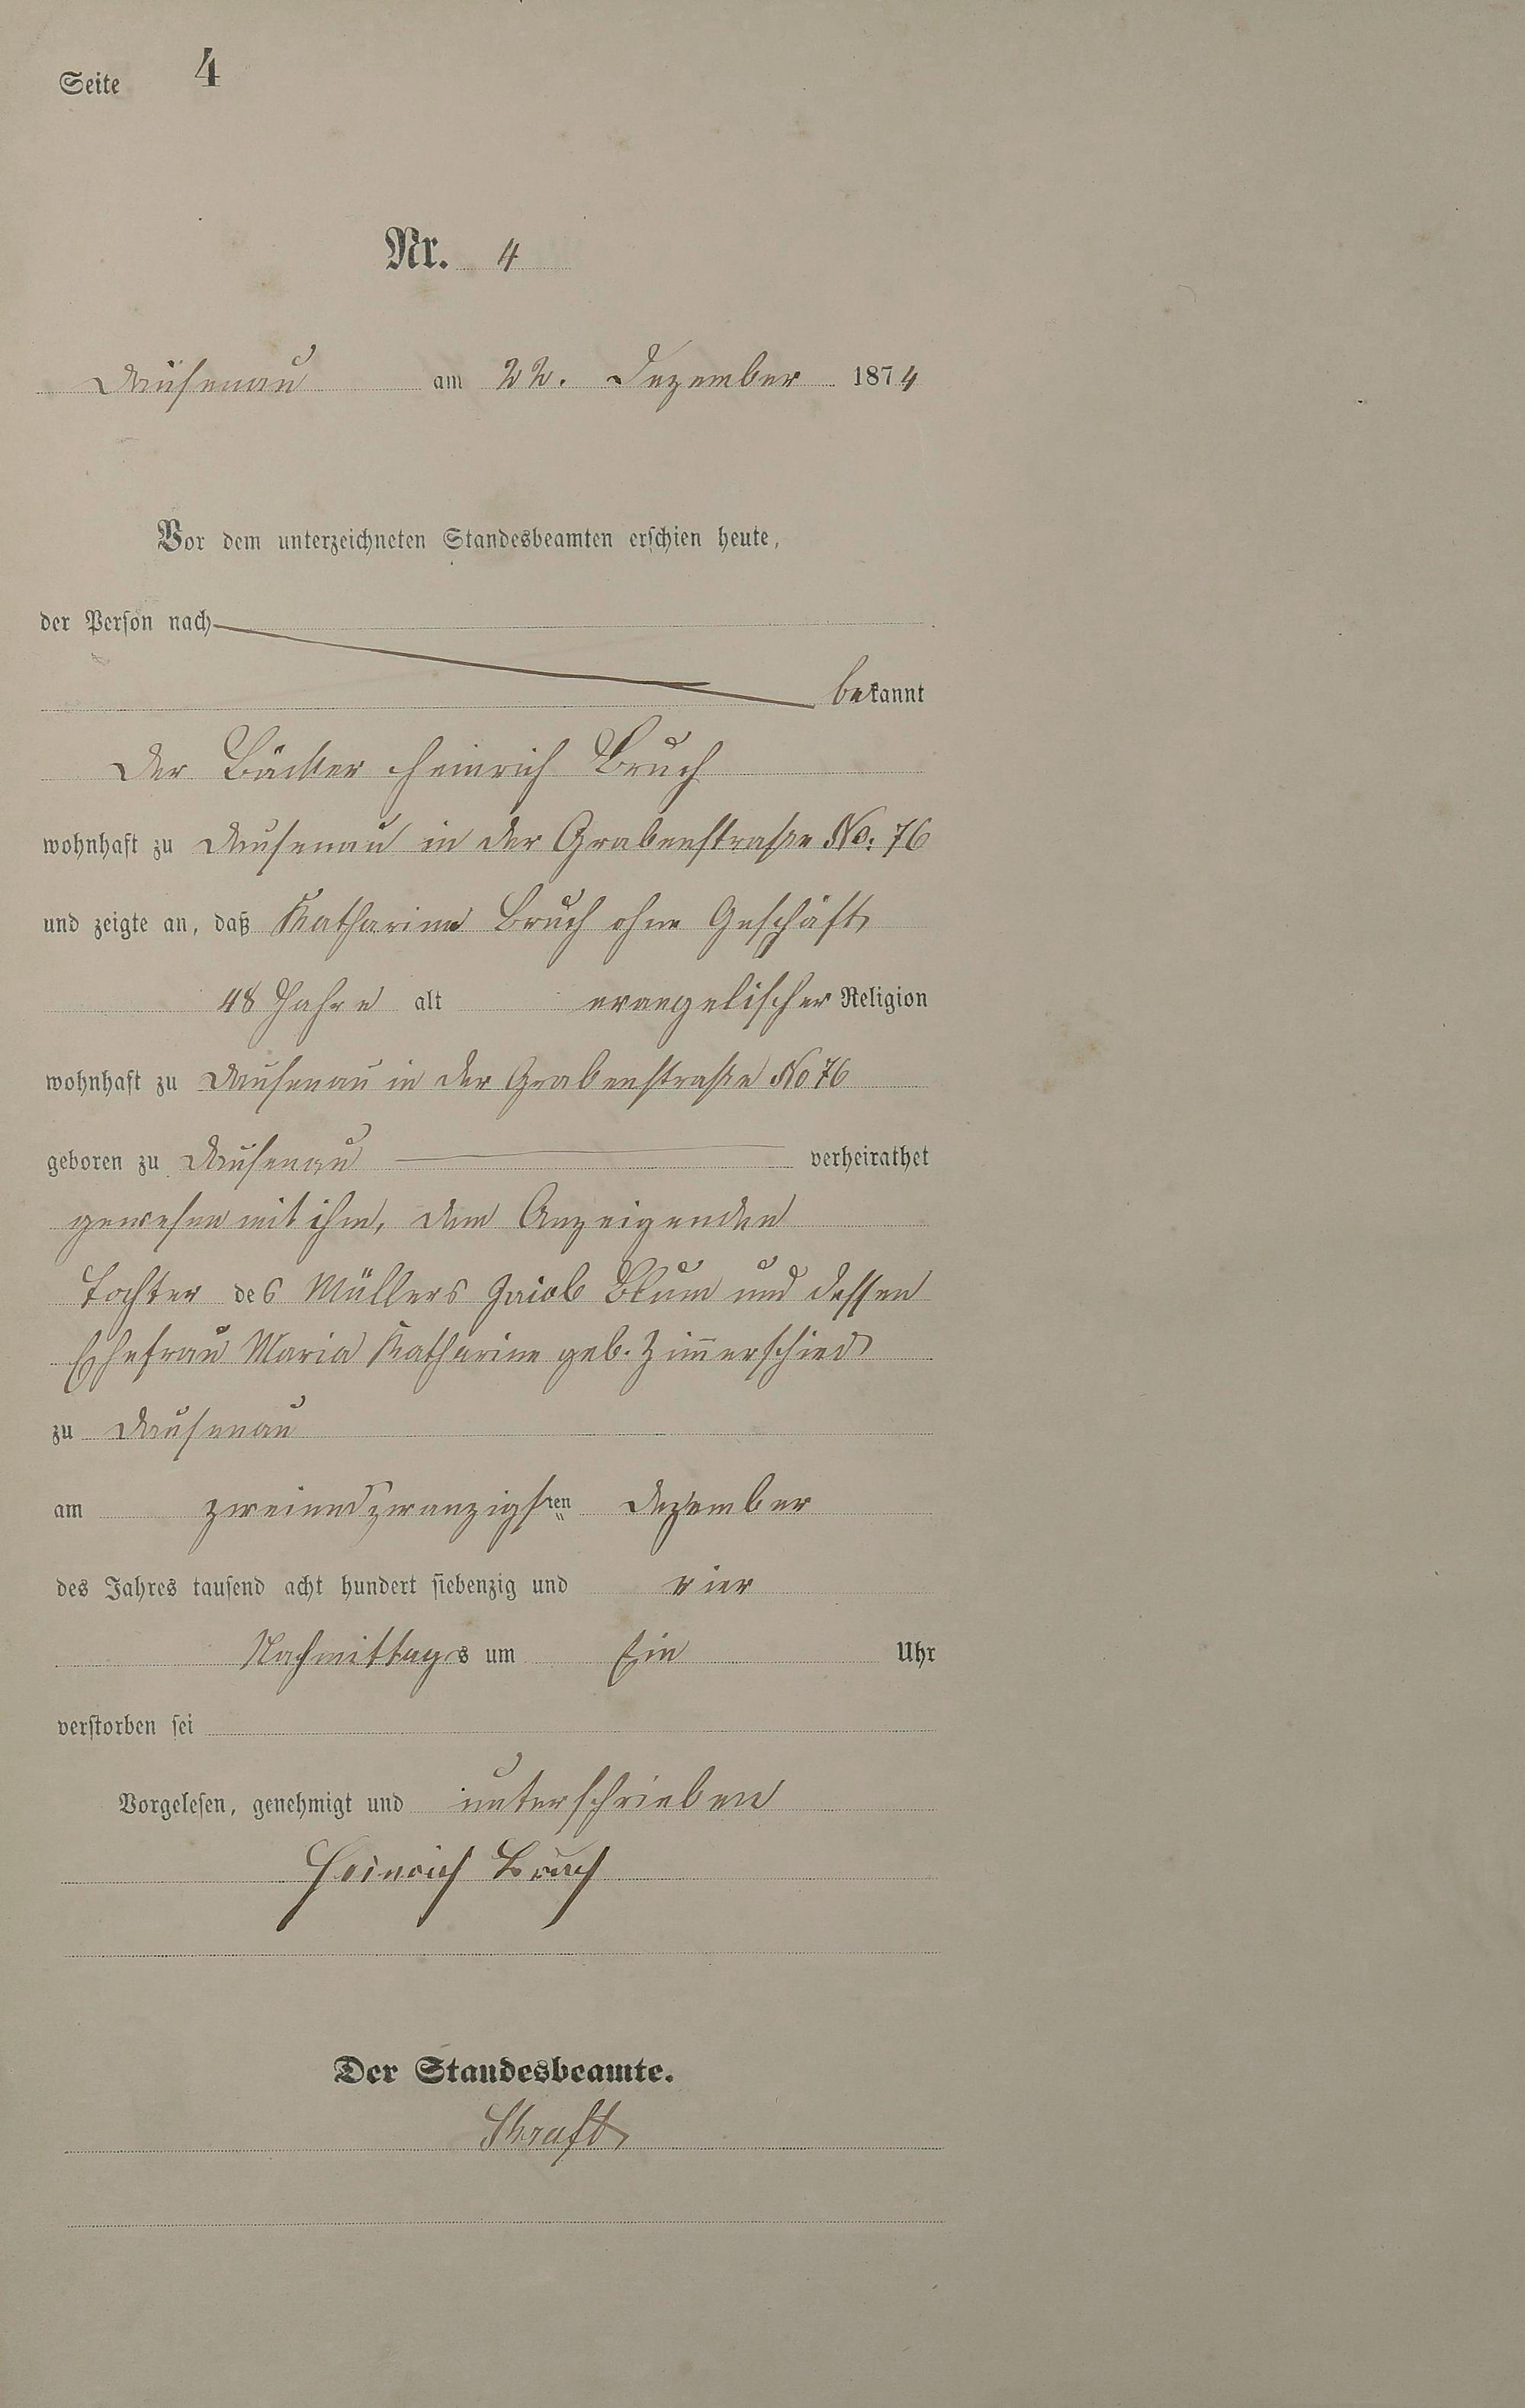 Seite 4
Nr. 4
Dausenau am 22. Dezember 1874
Vor dem unterzeichneten Standesbeamten erschien heute,
der Person nach
bekannt
Der Bäcker Heinrich Bruch
wohnhaft zu Dausenau in der Grabenstraße No: 76
und zeigte an, daß Katharine Bruch ohne Geschäft
48 Jahre alt evangelischer Religion
wohnhaft zu Dausenau in der Grabenstraße No 76
geboren zu Dausenau verheirathet
gewesen mit ihm, dem Anzeigenden
Tochter des Müllers Jacob Blum und dessen
Ehefrau Maria Katharine geb. Zim̄erschied
zu Dausenau
am zweiundzwanzigsten Dezember
des Jahres tausend acht hundert siebenzig und vier
Nachmittags um Ein Uhr
verstorben sei
Vorgelesen, genehmigt und unterschrieben
Heinrich Bruch
Der Standesbeamte.